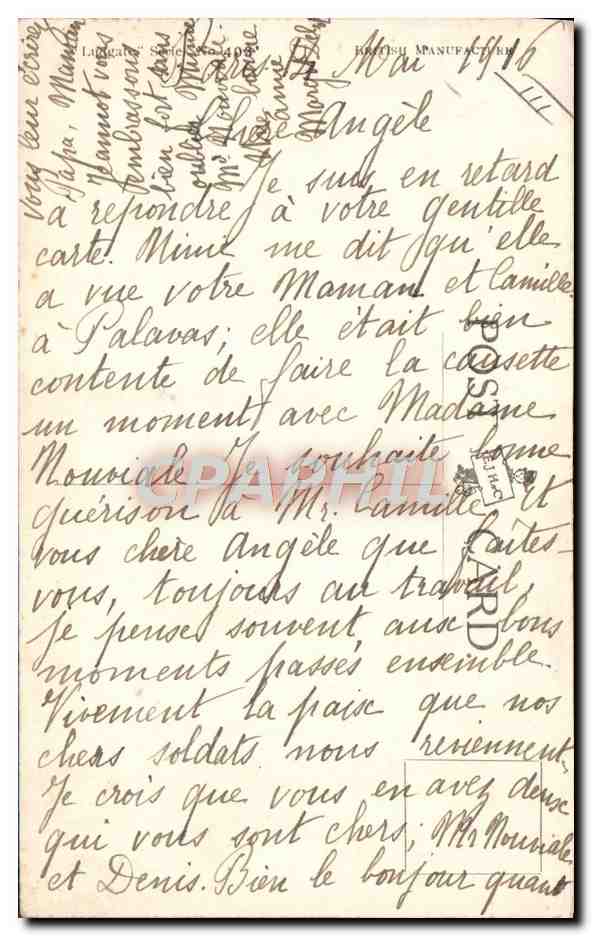 "Ludgate" Series No 408
BRITISH MANUFACTURE
Paris 14 Mai 1916
Chère Angèle
Je suis en retard
à repondre à votre gentille
carte. Mimi me dit qu'elle
a vue votre Maman et Camille
à Palavas; elle était bien
contente de faire la causette
un moment avec Madame
Nouviale Je souhaite bonne
guérison à Mr. Camille Et
vous chere Angèle que faites-
vous, toujours au travail,
je pense souvent aux bons
moments passés ensemble.
Vivement la paix que nos
chers soldats nous reviennent
Je crois que vous en avez deux
qui vous sont chers; Mr Nouviale
et Denis. Bien le bonjour quant
vous leur écrirez
Papa, Maman
Jeannot vous
embrassons
bien fort sans
oublier Mimi
Mr Nouviale
POST CARD
E.J.H & Co
CPAPHIL